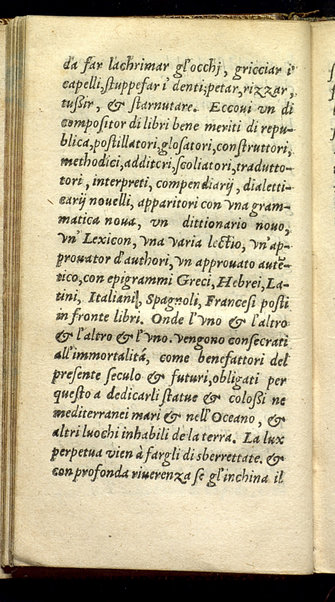 da far lachrimar gl'occhj, gricciar i
capelli, stuppefar i denti; petar, rizzar,
tussir, & starnutare. Eccoui vn di
compositor di libri bene meriti di repu-
blica, postillatori, glosatori, construttori,
methodici, additori, scoliatori, tradutto-
tori, interpreti, compendiarij, dialetti-
carij nouelli, apparitori con vna gram-
matica noua, vn dittionario nouo,
vn' Lexicon, vna varia lectio, vn'ap-
prouator d'authori, vn approuato autē-
tico, con epigrammi Greci, Hebrei, La-
tini, Italiani, Spagnoli, Francesi posti
in fronte libri. Onde l'vno & l'altro
& l'altro & l'vno. vengono consecrati
all'immortalitá, come benefattori del
presente seculo & futuri, obligati per
questo a dedicarli statue & colossi ne
mediterranei mari & nell'Oceano, &
altri luochi inhabili de la terra. La lux
perpetua vien à fargli di sberrettate. &
con profonda riuerenza se gl'inchina il